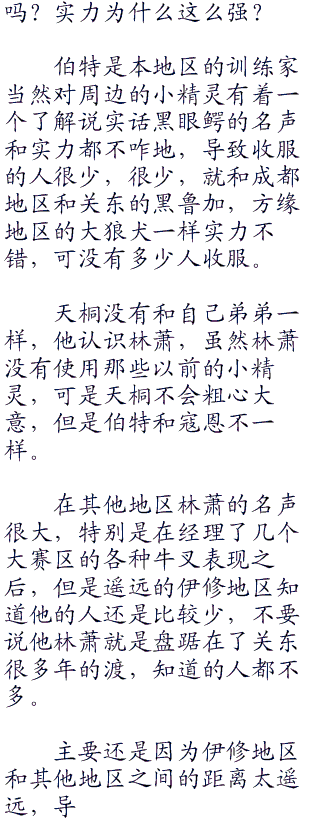 吗？实力为什么这么强？
伯特是本地区的训练家
当然对周边的小精灵有着一
个了解说实话黑眼鳄的名声
和实力都不咋地，导致收服
的人很少，很少，就和成都
地区和关东的黑鲁加，方缘
地区的大狼犬一样实力不
错，可没有多少人收服。
天桐没有和自己弟弟一
样，他认识林萧，虽然林萧
没有使用那些以前的小精
灵，可是天桐不会粗心大
意，但是伯特和寇恩不一
样。
在其他地区林萧的名声
很大，特别是在经理了几个
大赛区的各种牛叉表现之
后，但是遥远的伊修地区知
道他的人还是比较少，不要
说他林萧就是盘踞在了关东
很多年的渡，知道的人都不
多。
主要还是因为伊修地区
和其他地区之间的距离太遥
远，导